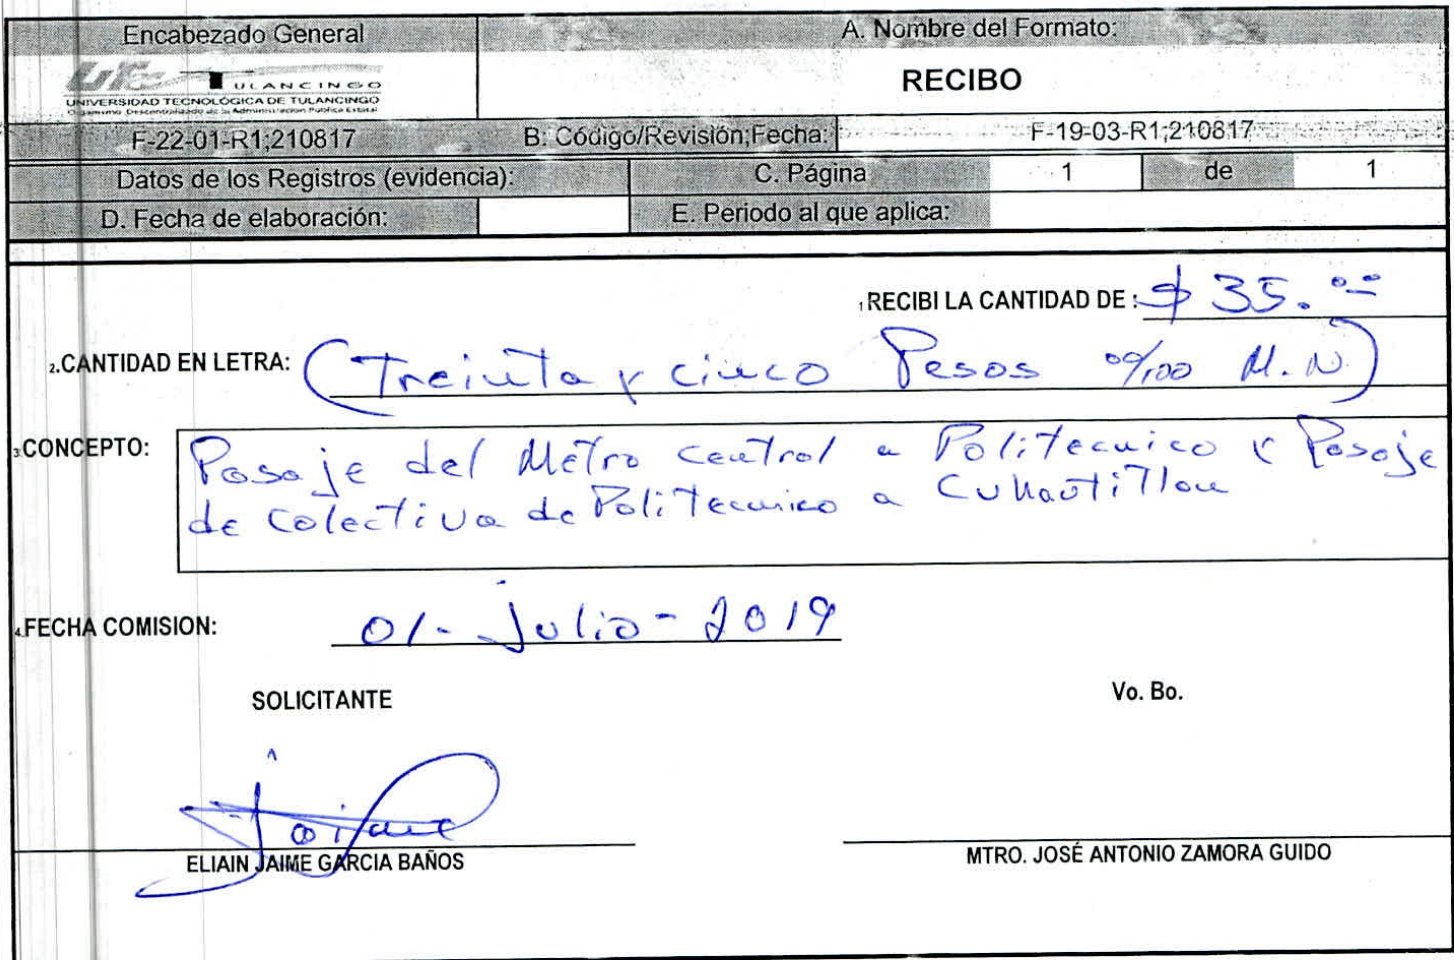 Encabezado General
A. Nombre del Formato:
TULANCINGO
UNIVERSIDAD TECNOLÓGICA DE TULANCINGO
Organismo Descentralizado de la Administración Pública Estatal
RECIBO
F-22-01-R1;210817
B. Código/Revisión;Fecha:
F-19-03-R1;210817
Datos de los Registros (evidencia):
C. Página
1
de
1
D. Fecha de elaboración:
E. Periodo al que aplica:
1 RECIBI LA CANTIDAD DE : $ 35.00
2.CANTIDAD EN LETRA: (Treinta y cinco Pesos 00/100 M.N.)
3.CONCEPTO: Pasaje del Metro central a Politecnico y Pasaje
de colectiva de Politecnico a Cuhautitlan
4.FECHA COMISION: 01-Julio-2019
SOLICITANTE
Vo. Bo.
ELIAIN JAIME GARCIA BAÑOS
MTRO. JOSÉ ANTONIO ZAMORA GUIDO